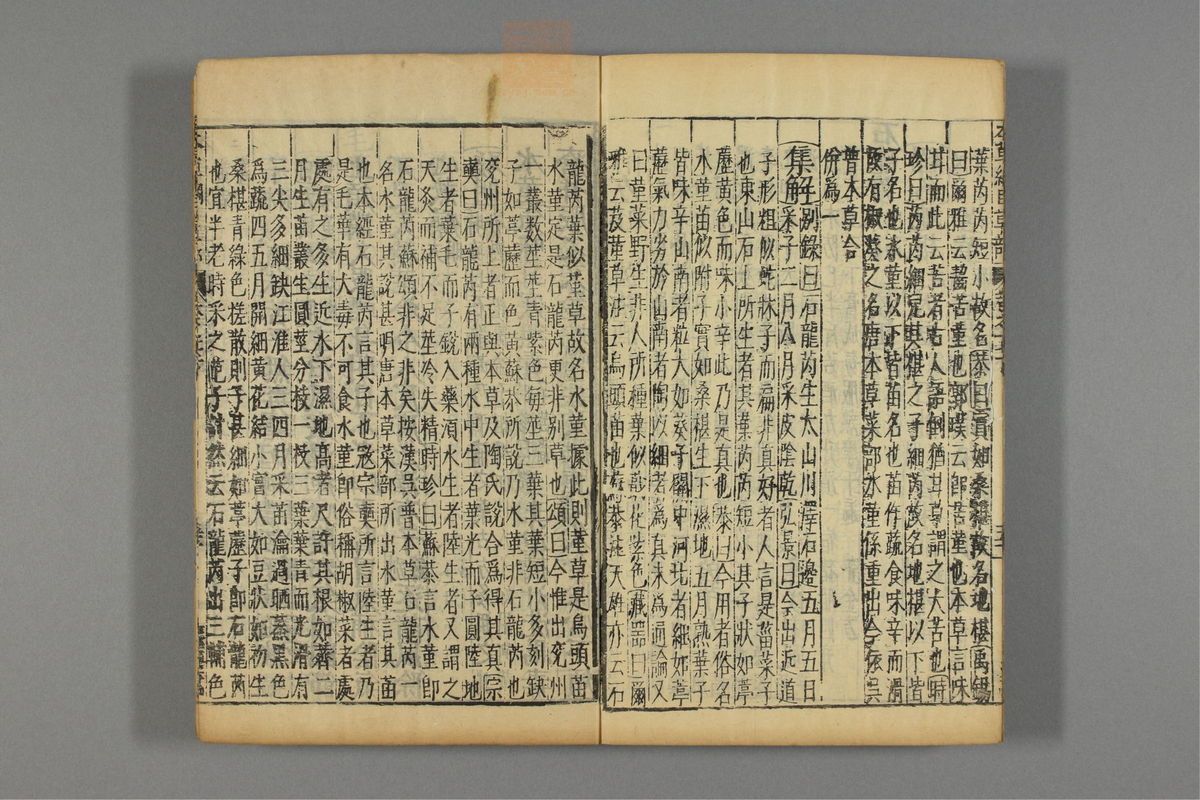 葉芮芮短小故名恭曰實如桑椹故名地椹禹錫
曰爾雅云齧苦堇也郭璞云即堇葵也本草言味
甘而此云苦者古人語倒猶甘草謂之大苦也時
珍曰芮芮細貌其椹之子細芮故名地椹以下皆
子名也水堇以下皆苗名也苗作蔬食味辛而滑
故有椒葵之名唐本草菜部水堇係重出今依吳
普本草合
併爲一
集解別錄曰石龍芮生太山川澤石邊五月五日
采子二月八月采皮陰乾弘景曰今出近道
子形粗似蛇牀子而扁非真好者人言是菑菜子
也東山石上所生者其葉芮芮短小其子狀如葶
藶黃色而味小辛此乃是真也恭曰今用者俗名
水堇苗似附子實如桑椹生下濕地五月熟葉子
皆味辛山南者粒大如葵子關中河北者細如葶
藶氣力劣於山南者陶以細者爲真未爲通論又
曰堇菜野生非人所種葉似蕺花紫色藏器曰爾
雅云芨堇草注云烏頭苗也蘇恭注天雄亦云石
龍芮葉似堇草故名水堇據此則堇草是烏頭苗
水堇定是石龍芮更非別草也頌曰今惟出兗州
一叢數莖莖青紫色每莖三葉其葉短小多刻缺
子如葶藶而色黃蘇恭所說乃水堇非石龍芮也
兗州所上者正與本草及陶氏說合爲得其真宗
奭曰石龍芮有兩種水中生者葉光而子圓陸地
生者葉毛而子銳入藥須水生者陸生者又謂之
天灸而補不足莖冷失精時珍曰蘇恭言水堇即
石龍芮蘇頌非之非矣按漢吳普本草石龍芮一
名水堇其說甚明唐本草菜部所出水堇言其苗
也本經石龍芮言其子也寇宗奭所言陸生者乃
是毛堇有大毒不可食水堇即俗稱胡椒菜者處
處有之多生近水下濕地高者尺許其根如薺二
月生苗叢生圓莖分枝一枝三葉葉青而光滑有
三尖多細缺江淮人三四月采苗瀹過晒蒸黑色
爲蔬四五月開細黃花結小實大如豆狀如初生
桑椹青綠色搓散則子甚細如葶藶子即石龍芮
也宜半老時采之范子計然云石龍芮出三輔色